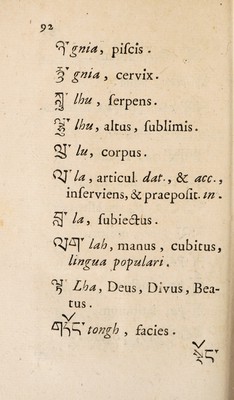 92
ཉ་ gnia, piſcis.
gnia, cervix.
ཀླུ་ lhu, ſerpens.
lhu, altus, ſublimis.
ལུ་ lu, corpus.
la, articul. dat., & acc.,
inſerviens, & praepoſit. in.
la, ſubiectus.
ལག་ lah, manus, cubitus,
lingua populari.
ལྷ་ Lha, Deus, Divus, Bea-
tus.
གདོང་ tongh, facies.